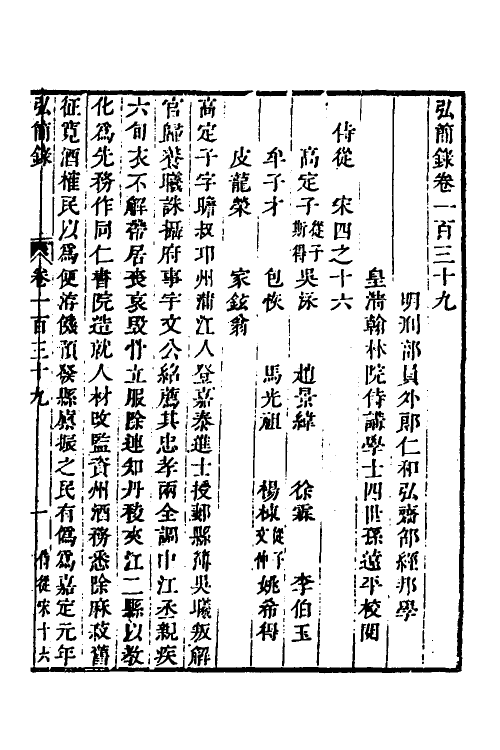 弘簡錄卷一百三十九
明刑部員外郎仁和弘齋邵經邦學
皇淸翰林院侍講學士四世孫遠平校閱
侍從 宋四之十六
高定子 從子斯得 吳泳 趙景緯 徐霖 李伯玉
牟子才 包恢 馬光祖 楊棟 從子文仲 姚希得
皮龍榮 家鉉翁
高定子字瞻叔卭州蒲江人登嘉泰進士授郪縣簿吳曦叛解
官歸養曦誅攝府事宇文公紹薦其忠孝兩全調中江丞親疾
六旬衣不解帶居喪哀毀骨立服除連知丹稜夾江二縣以教
化爲先務作同仁書院造就人材改監資州酒務悉除麻菽舊
征寬酒榷民以爲便洊饑預發縣廩振之民有僞爲嘉定元年
弘簡錄 卷一百三十九 一 侍從宋十六